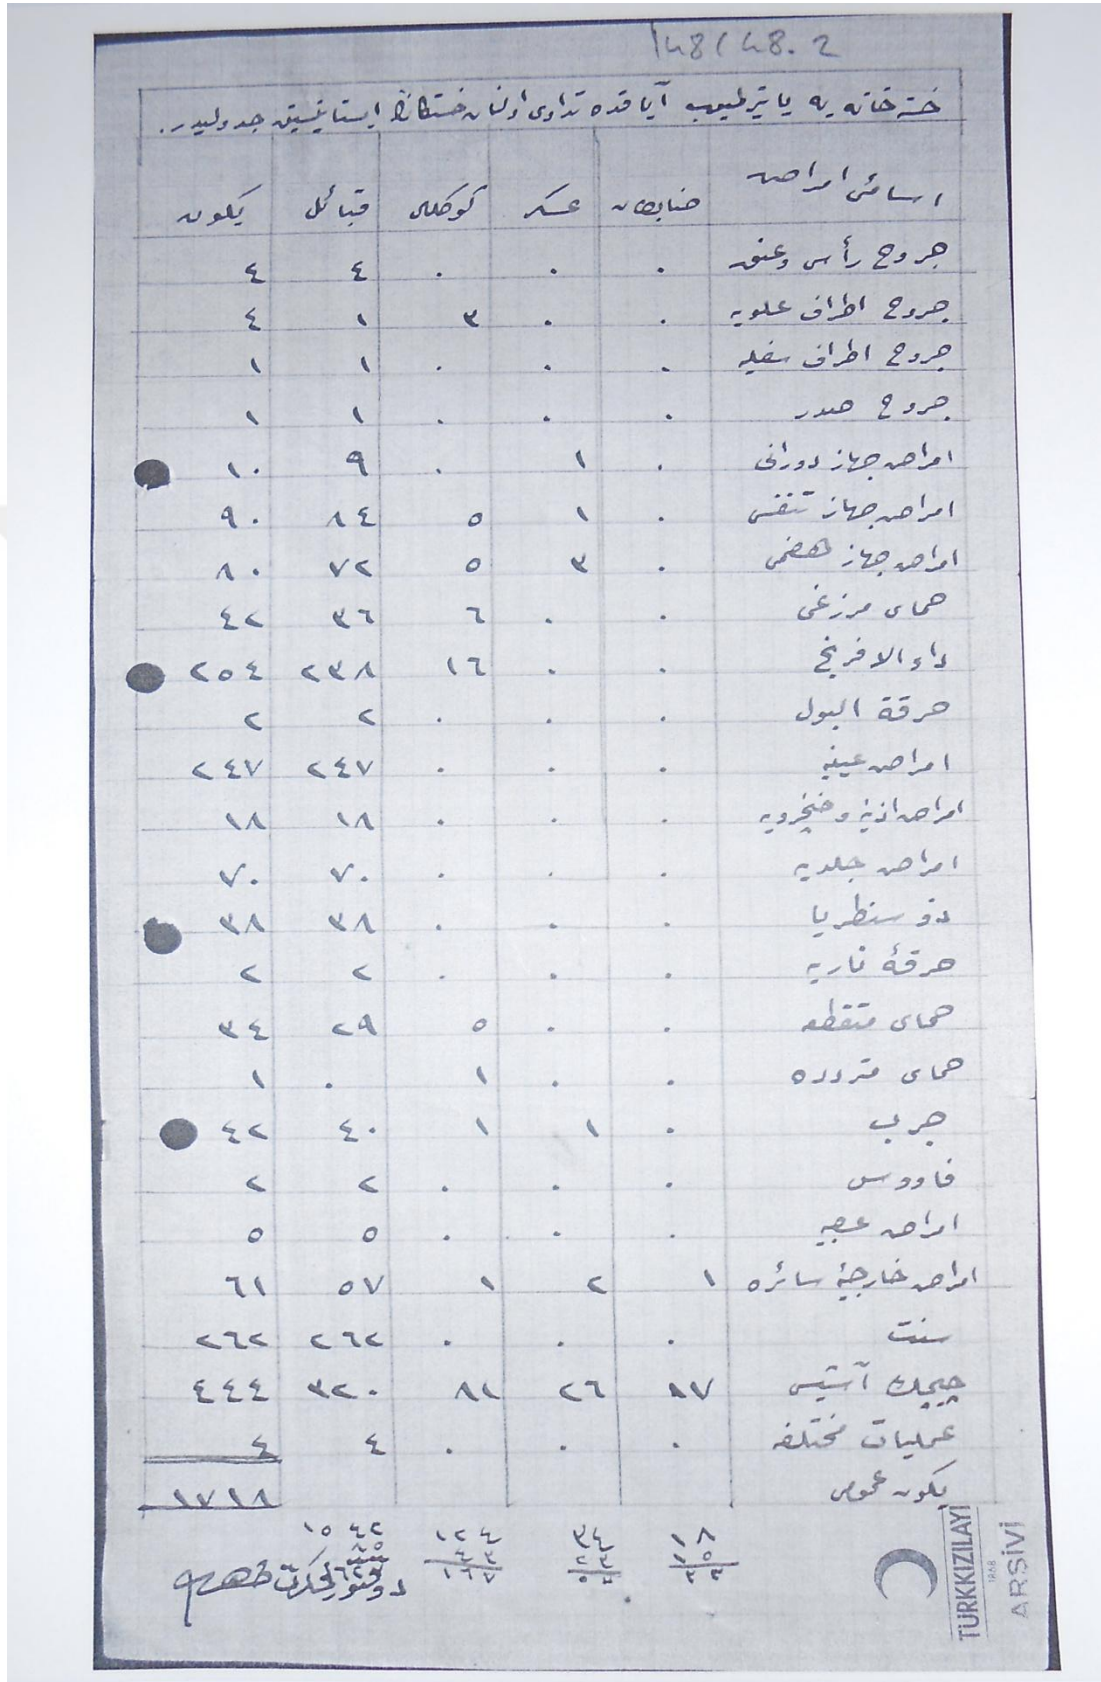 148/48.2
خسته خانه یه یاتیرلمیوب آیاقده تداوی اولنان خستکانڭ ایستاتیستیق جدولیدر.
اسامئ امراض ضابطان عسكر كوكللی قبائل يكون
جروح رأس وعنق ٠ ٠ ٠ ٤ ٤
جروح اطراف علويه ٠ ٠ ٣ ١ ٤
جروح اطراف سفليه ٠ ٠ ٠ ١ ١
جروح صدر ٠ ٠ ٠ ١ ١
امراض جهاز دورانی ٠ ١ ٠ ٩ ١٠
امراض جهاز تنفسی ٠ ١ ٥ ٨٤ ٩٠
امراض جهاز هضمی ٠ ٣ ٥ ٧٢ ٨٠
حمای مرزغی ٠ ٠ ٦ ٣٦ ٤٢
داء الافرنج ٠ ٠ ١٦ ٢٣٨ ٢٥٤
حرقة البول ٠ ٠ ٠ ٢ ٢
امراض عينيه ٠ ٠ ٠ ٢٤٧ ٢٤٧
امراض اذنيه وحنجرويه ٠ ٠ ٠ ١٨ ١٨
امراض جلديه ٠ ٠ ٠ ٧٠ ٧٠
ديزانتريا ٠ ٠ ٠ ٣٨ ٣٨
حرقۀ ناريه ٠ ٠ ٠ ٢ ٢
حمای متقطعه ٠ ٠ ٥ ٢٩ ٣٤
حمای متردده ٠ ٠ ١ ٠ ١
جرب ٠ ١ ١ ٤٠ ٤٢
فاووس ٠ ٠ ٠ ٢ ٢
امراض عصبيه ٠ ٠ ٠ ٥ ٥
امراض خارجيۀ سائره ١ ٢ ١ ٥٧ ٦١
سنت ٠ ٠ ٠ ٢٦٢ ٢٦٢
چيچك آشيسی ١٧ ٢٦ ٨١ ٣٢٠ ٤٤٤
عمليات مختلفه ٠ ٠ ٠ ٤ ٤
يكون عمومی ١٧١٨
١٨ ٣٤ ١٢٤ ١٥٤٢
١٥ ٢٣ ٤٣
٣٣ ٥٧ ١٦٧
دوقتور
TÜRKKIZILAYI
1868
ARŞİVİ